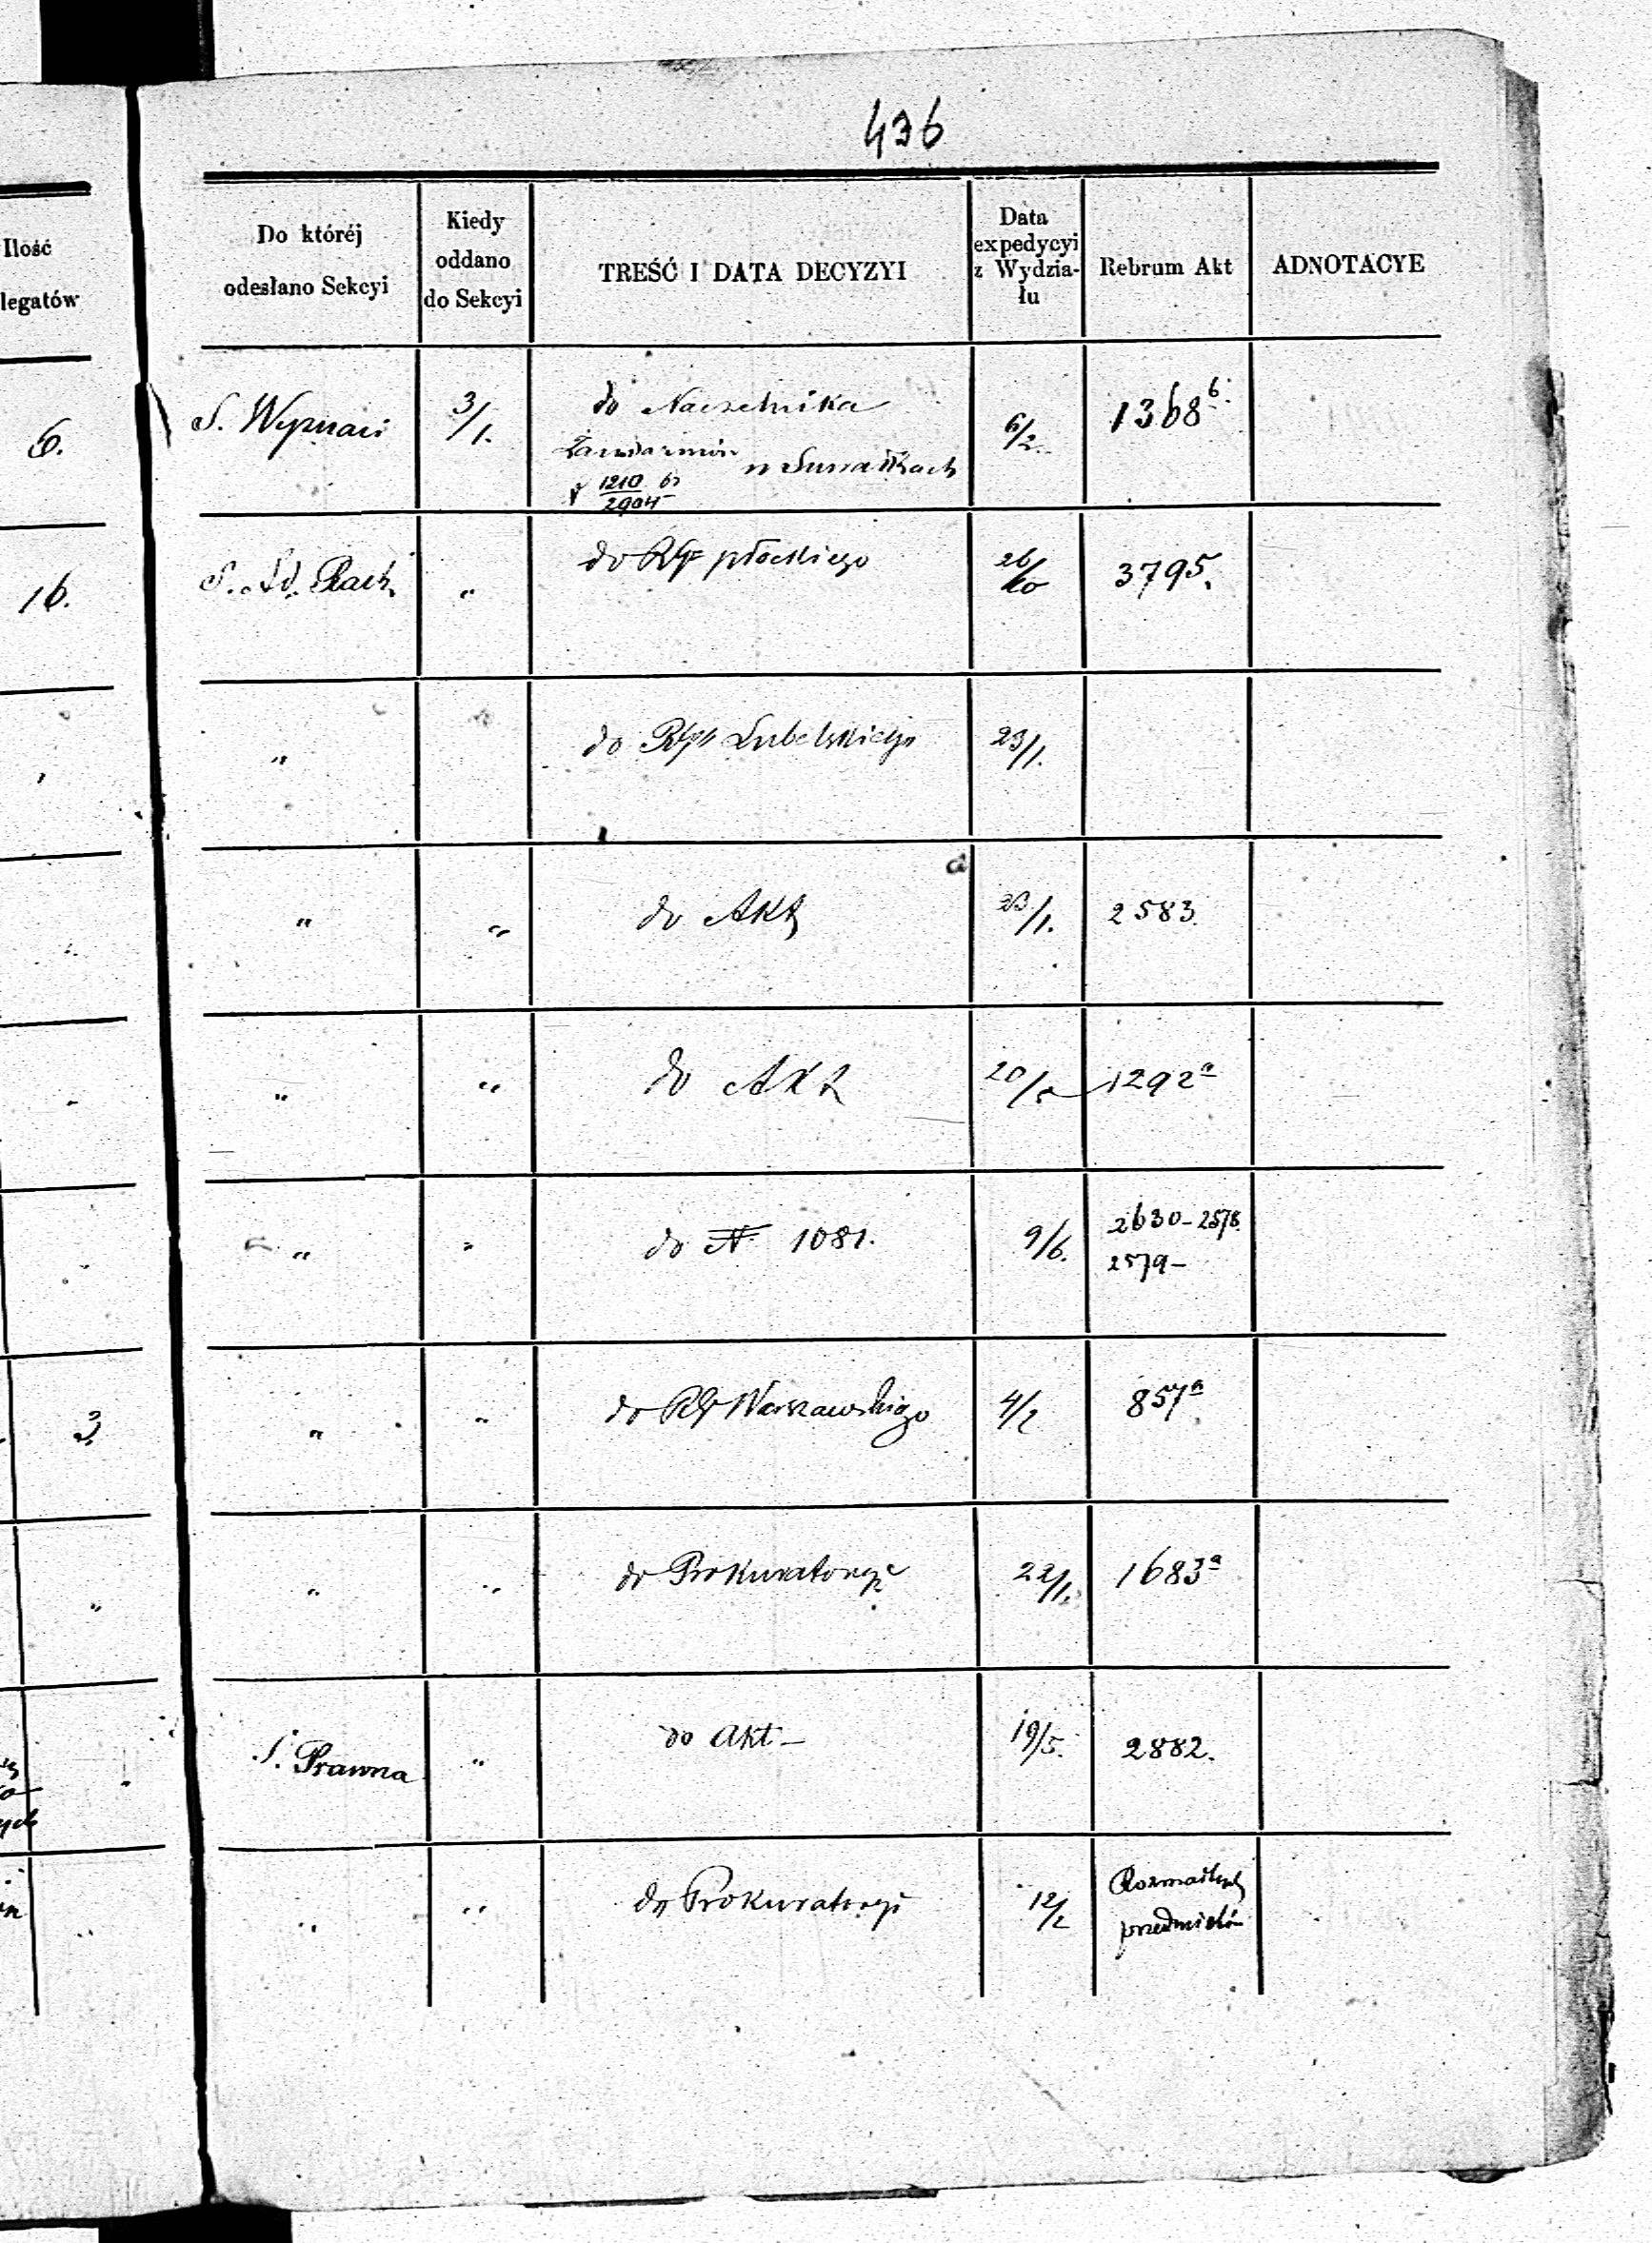 436
Ilość
legatów
Do któréj
odesłano Sekcyi
Kiedy
oddano
do Sekcyi
TREŚĆ I DATA DECYZYI
Data
expedycyi
z Wydzia-
łu
Rebrum Akt
ADNOTACYE
6.
S. Wyznań
3/1.
do Naczelnika
Żandarmów
w Suwałkach
1210
2904
6/2.
1368 b.
16.
S. Ad. Rach.
"
do RG płockiego
26/10
3795.
"
do RG Lubelskiego
23/1.
"
"
do Akt
23/1.
2583
"
"
do Akt
20/5
1292 a
"
"
do N 1081.
9/6.
2630 - 2578.
2579 -
3.
"
"
do RG Warszawskiego
4/2
857 a
"
"
"
do Prokuratoryi
22/1.
1683 a
S. Prawna
"
do Akt -
19/5.
2882.
"
"
do Prokuratoryi
12/2
Rozmaitych
przedmiotów